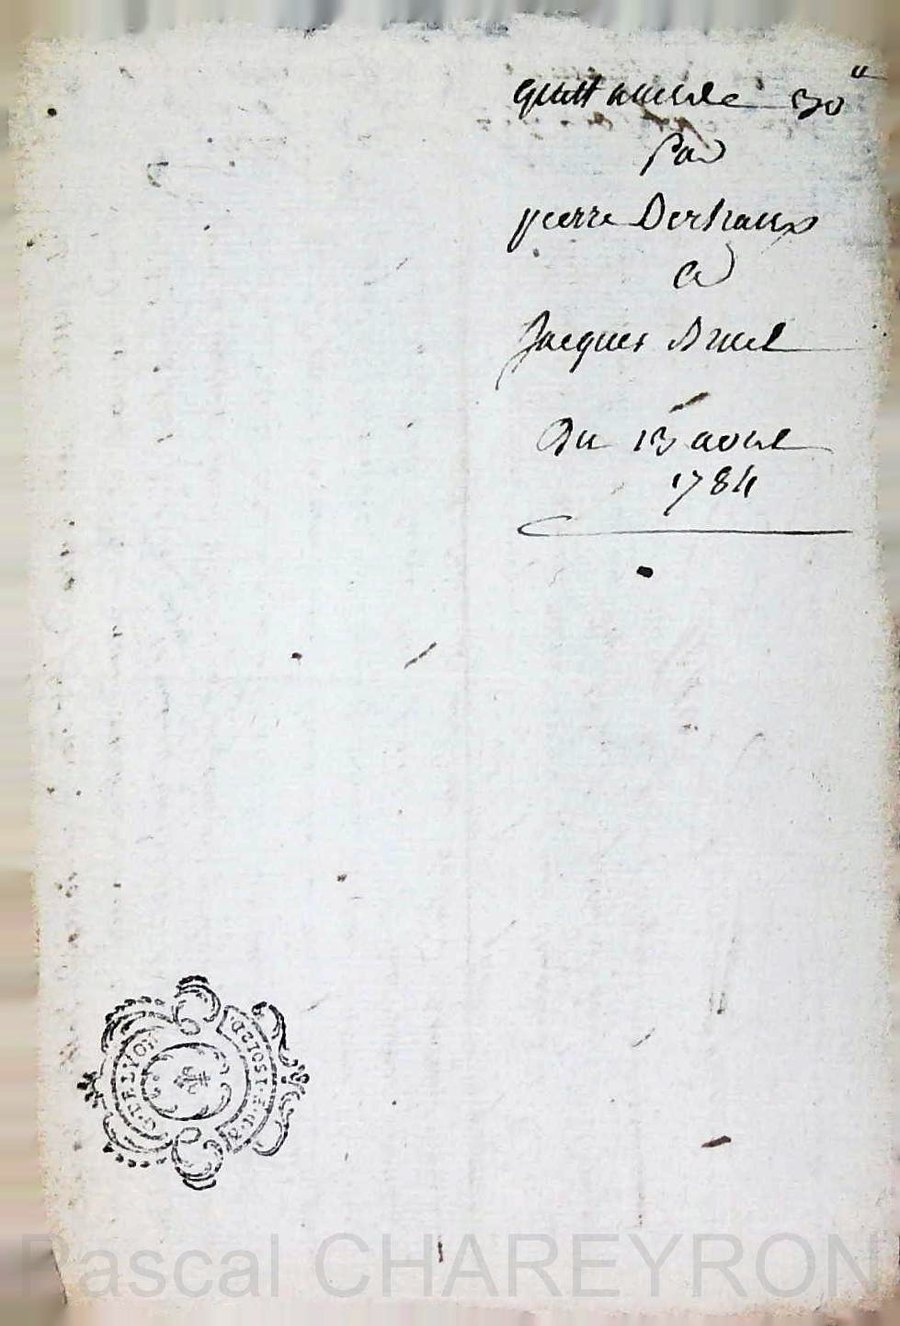 quittance de 30ᵗᵗ
par
pierre Dershaux
a
Jacques Bruel
Du 13 avril
1784
G. DE LYON
Pascal CHAREYRON